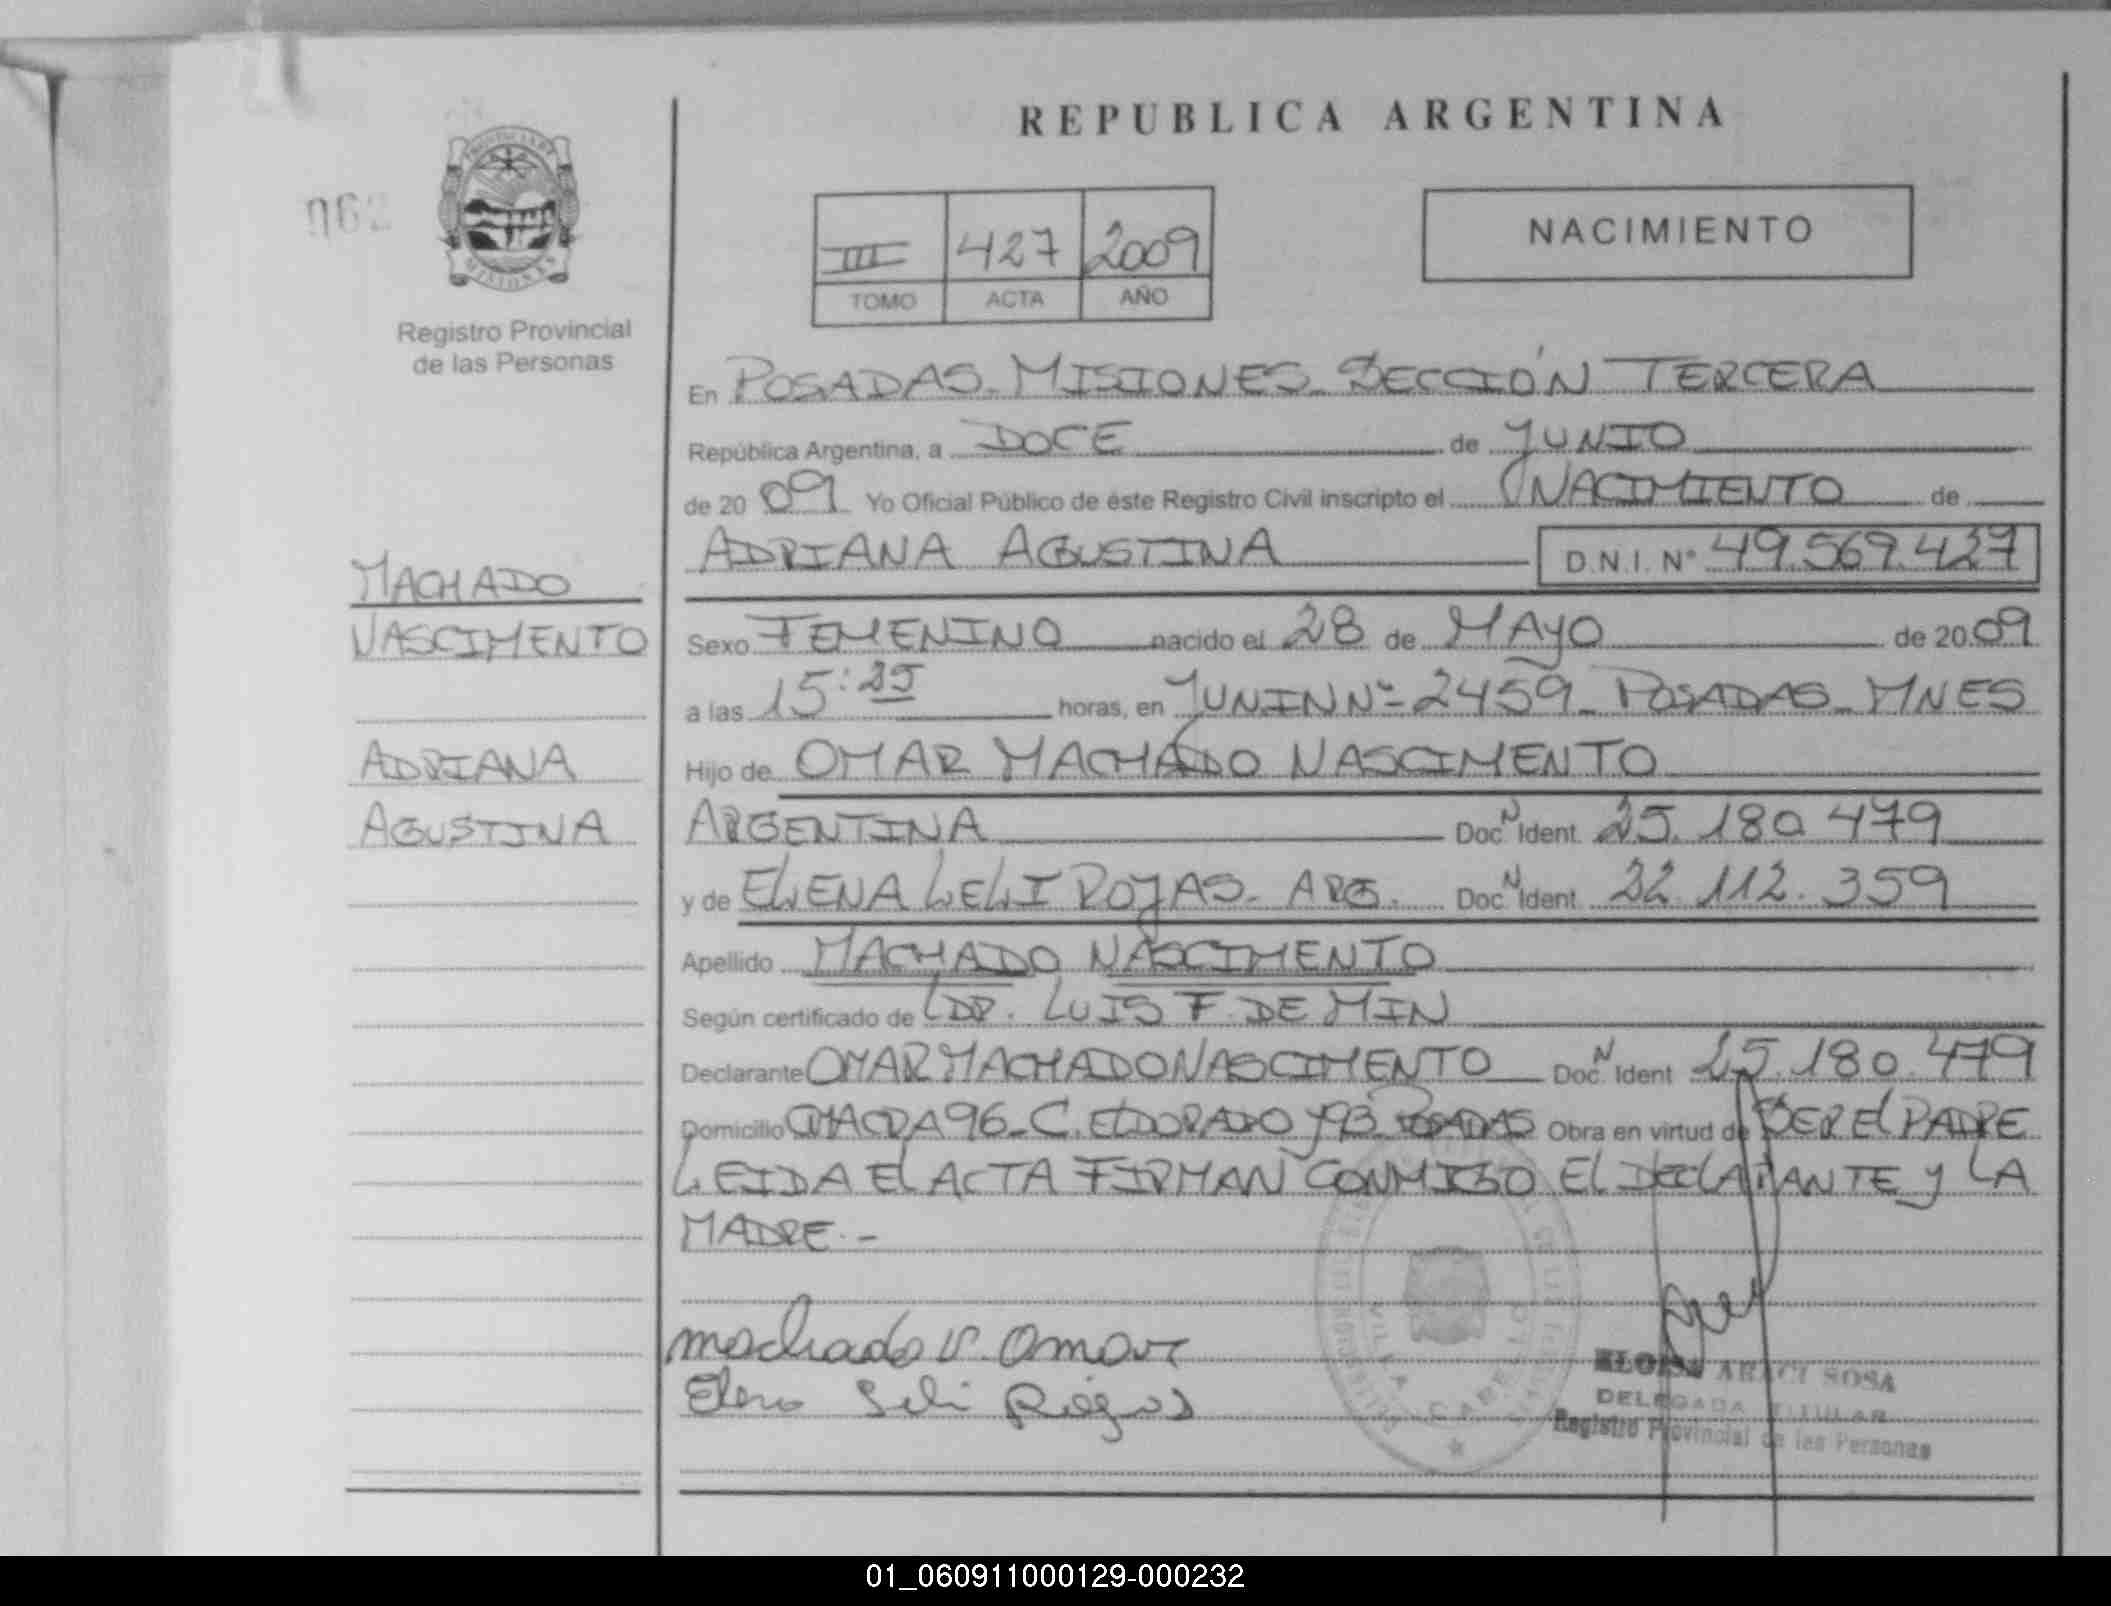 REPUBLICA ARGENTINA
062
PROVINCIA DE
MISIONES
Registro Provincial
de las Personas
III 427 2009
TOMO ACTA AÑO
NACIMIENTO
En POSADAS - MISIONES - SECCIÓN TERCERA
República Argentina, a DOCE de JUNIO
de 20 09 Yo Oficial Público de éste Registro Civil inscripto el NACIMIENTO de
ADRIANA AGUSTINA D.N.I. N° 49.569.427
MACHADO
NASCIMENTO
ADRIANA
AGUSTINA
Sexo FEMENINO nacido el 28 de MAYO de 20 09
a las 15:25 horas, en JUNIN N°- 2459 - POSADAS - MNES
Hijo de OMAR MACHADO NASCIMENTO
ARGENTINA Doc. N Ident. 25.180.479
y de ELENA LELI ROJAS - ARG. Doc. N Ident. 22.112.359
Apellido MACHADO NASCIMENTO
Según certificado de DR. LUIS F. DE MIN
Declarante OMAR MACHADO NASCIMENTO Doc. N Ident 25.180.479
Domicilio CHACRA 96 - C. ELDORADO y 93 POSADAS Obra en virtud de SER El PADRE
LEIDA El ACTA FIRMAN CONMIGO El DEClARANTE y LA
MADRE.-
machado N. Omar
Elena Leli Rojas
VILLA CABELLO
ELOISA ARACI SOSA
DELEGADA TITULAR
Registro Provincial de las Personas
01_060911000129-000232